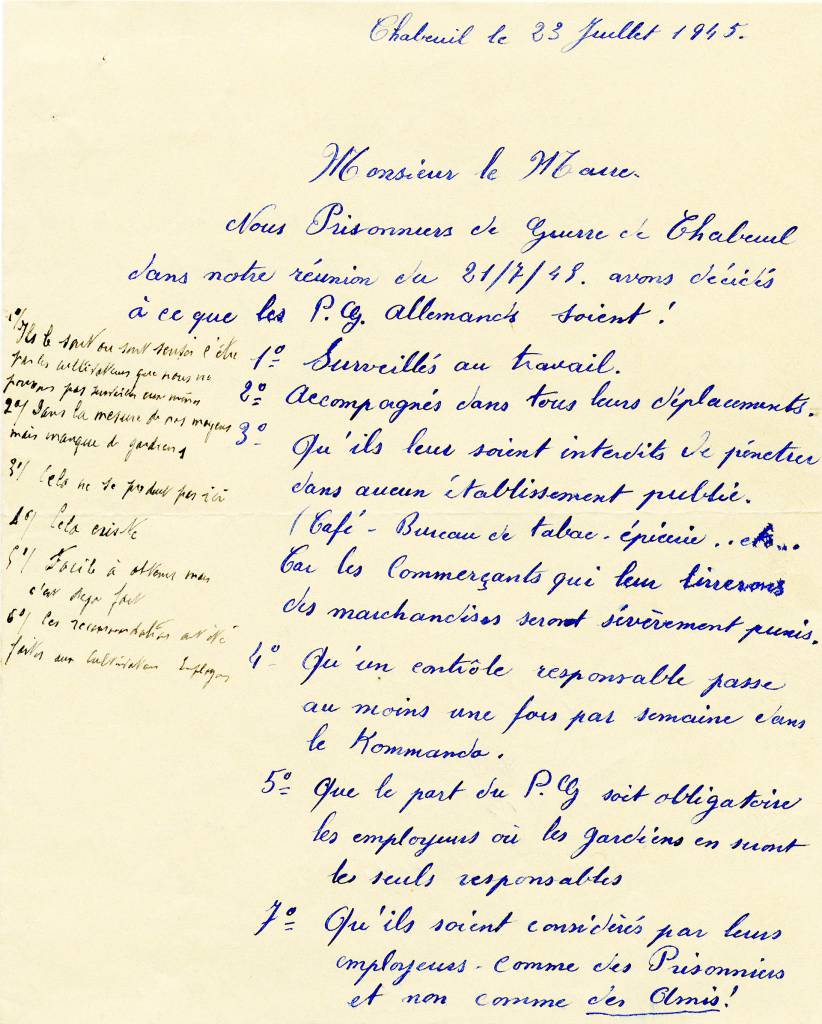 Chabeuil le 23 Juillet 1945.
Monsieur le Maire.
Nous Prisonniers de Guerre de Chabeuil
dans notre réunion du 21/7/45. avons décidés
à ce que les P.G. Allemands soient !
1º Surveillés au travail.
2º Accompagnés dans tous leurs déplacements.
3º Qu'ils leur soient interdits de pénétrer
dans aucun établissement public.
(Café - Bureau de tabac - épicerie .. etc...
Car les Commerçants qui leur livrerons
des marchandises seront sévèrement punis.
4º Qu'un contrôle responsable passe
au moins une fois par semaine dans
le Kommando.
5º Que le port du P.G soit obligatoire
les employeurs où les gardiens en seront
les seuls responsables
7º Qu'ils soient considérés par leurs
employeurs - comme des Prisonniers
et non comme des Amis!
1º/ Ils le sont ou sont sensés l'être
par les cultivateurs que nous ne
pouvons pas surveiller eux mêmes
2º/ Dans la mesure de nos moyens
mais manque de gardiens
3º/ Cela ne se produit pas ici
4º/ Cela existe
5º/ Facile à obtenir mais
c'est déjà fait
6º/ Ces recommandations ont été
faites aux Cultivateurs Employeurs